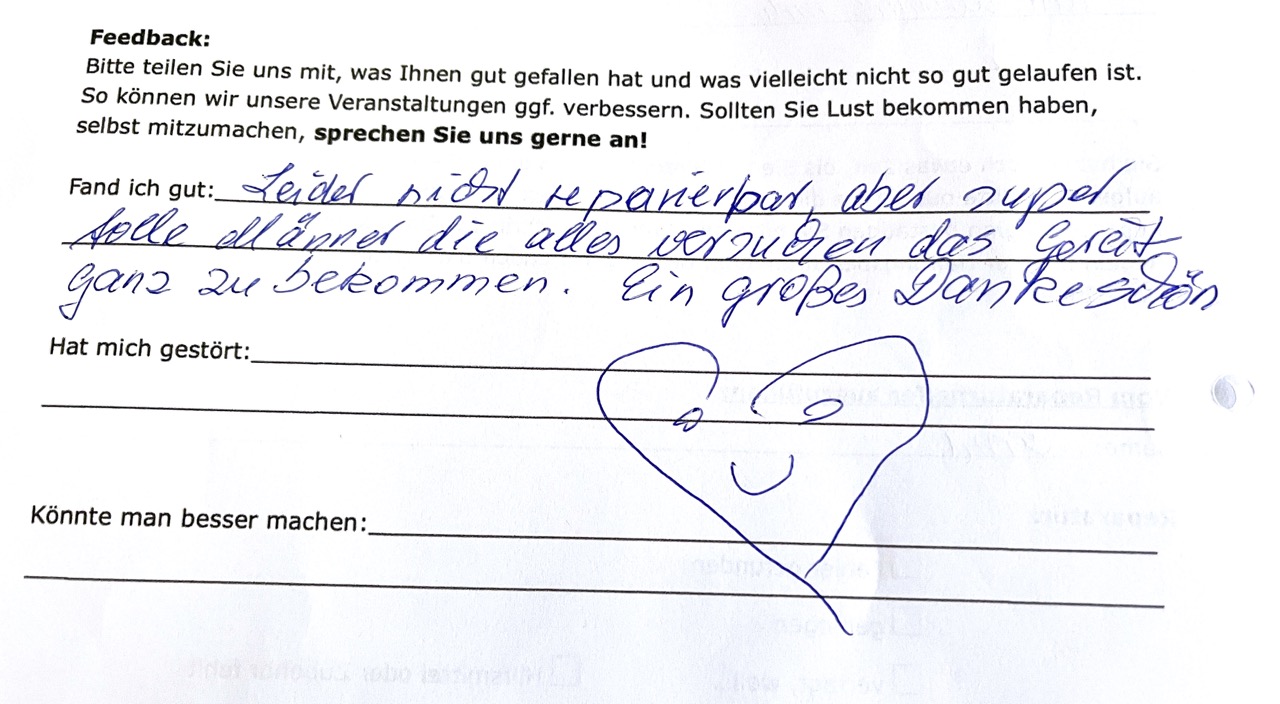 Feedback:
Bitte teilen Sie uns mit, was Ihnen gut gefallen hat und was vielleicht nicht so gut gelaufen ist.
So können wir unsere Veranstaltungen ggf. verbessern. Sollten Sie Lust bekommen haben,
selbst mitzumachen, sprechen Sie uns gerne an!
Fand ich gut: Leider nicht reparierbar, aber super
tolle Männer die alles versuchen das Gerät
ganz zu bekommen. Ein großes Dankeschön
Hat mich gestört:
Könnte man besser machen: